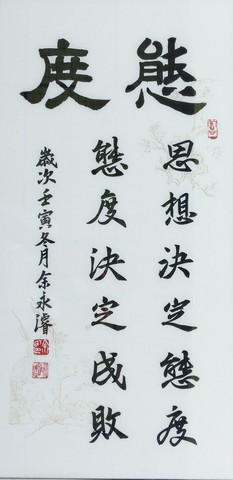 態度
思想決定態度
態度決定成敗
歲次壬寅冬月余永濬